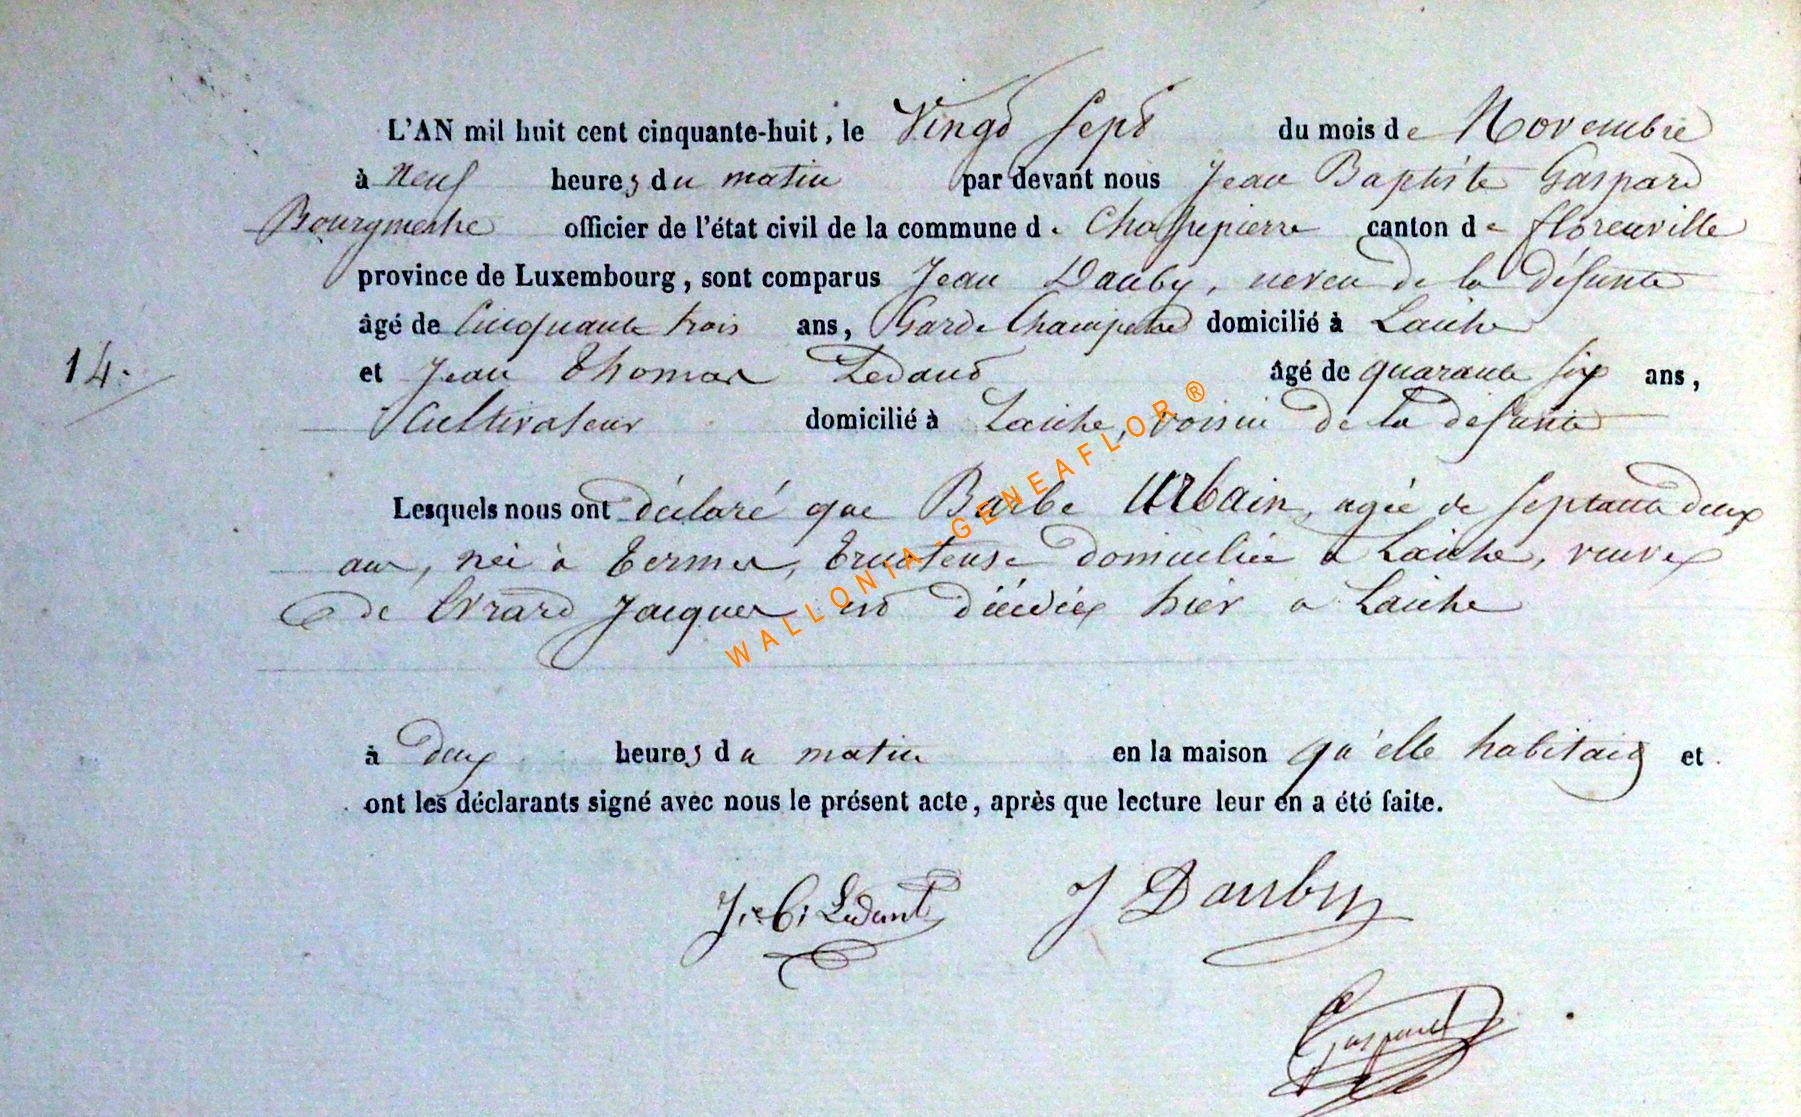 L'AN mil huit cent cinquante-huit, le Vingt Sept du mois de Novembre
à Neuf heures du matin par devant nous Jean Baptiste Gaspard
Bourgmestre officier de l'état civil de la commune de Chassepierre canton de florenville
province de Luxembourg, sont comparus Jean Dauby, neveu de la défunte
âgé de Cinquante trois ans, Garde Champetre domicilié à Laiche
14.
et Jean Thomas Ledant âgé de quarante six ans,
Cultivateur domicilié à Laiche, voisin de la defunte
Lesquels nous ont déclaré que Barbe Urbain, agée de septante deux
ans, née à Termes, domiciliée a Laiche, veuve
de Evrard Jacques est décédée hier a Laiche
à deux heures du matin en la maison qu'elle habitait et
ont les déclarants signé avec nous le présent acte, après que lecture leur en a été faite.
Ledant J Dauby
Gaspard
WALLONIA-GENEAFLOR ®